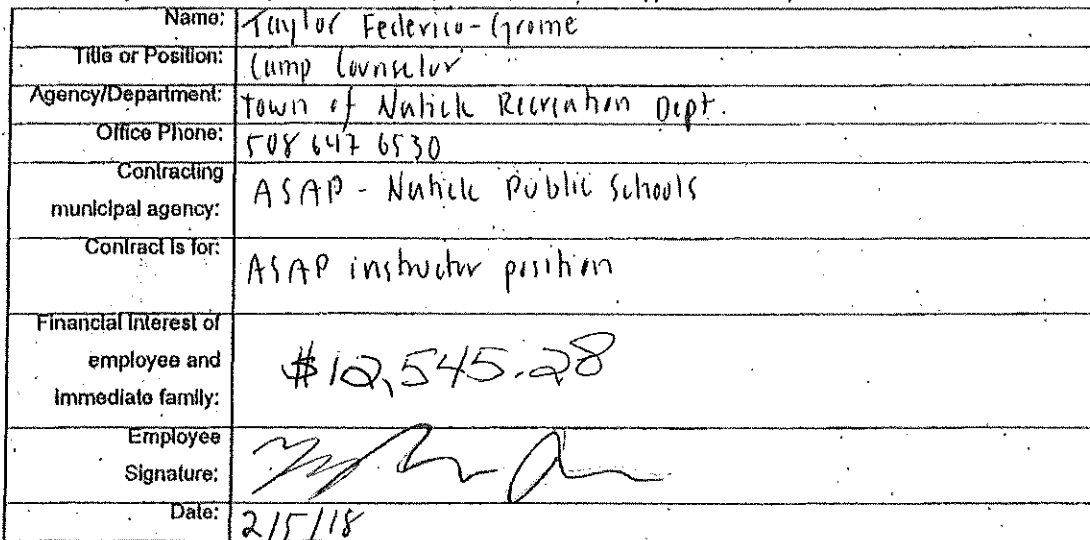 Name: Taylor Federico-Grome
Title or Position: Camp Counselor
Agency/Department: Town of Natick Recreation Dept.
Office Phone: 508 647 6530
Contracting
municipal agency: ASAP - Natick Public Schools
Contract is for: ASAP instructor position
Financial Interest of
employee and $12,545.28
immediate family:
Employee
Signature:
Date: 2/5/18